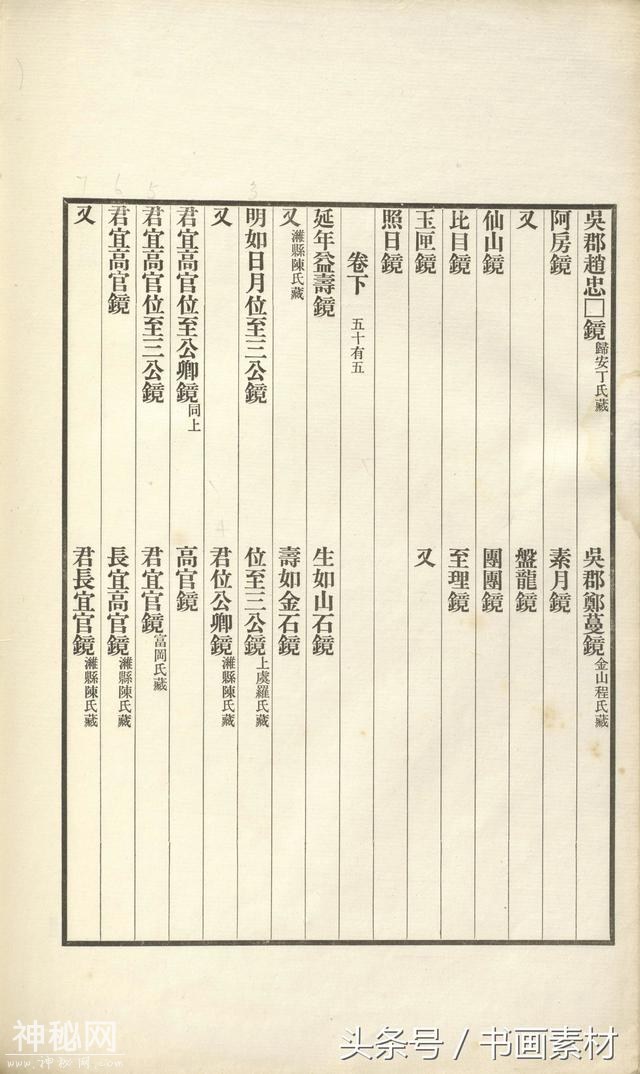 吳郡趙忠□鏡歸安丁氏藏
吳郡鄭蔓鏡金山程氏藏
阿房鏡
素月鏡
又
盤龍鏡
仙山鏡
團團鏡
比目鏡
至理鏡
玉匣鏡
又
照日鏡
卷下 五十有五
延年益壽鏡
生如山石鏡
又濰縣陳氏藏
壽如金石鏡
明如日月位至三公鏡
位至三公鏡上虞羅氏藏
又
君位公卿鏡濰縣陳氏藏
君宜高官位至公卿鏡同上
高官鏡
君宜高官位至三公鏡
君宜官鏡富岡氏藏
君宜高官鏡
長宜高官鏡濰縣陳氏藏
又
君長宜官鏡濰縣陳氏藏
7 6 5 3
4
神秘网
www.神秘网.com
头条号 / 书画素材